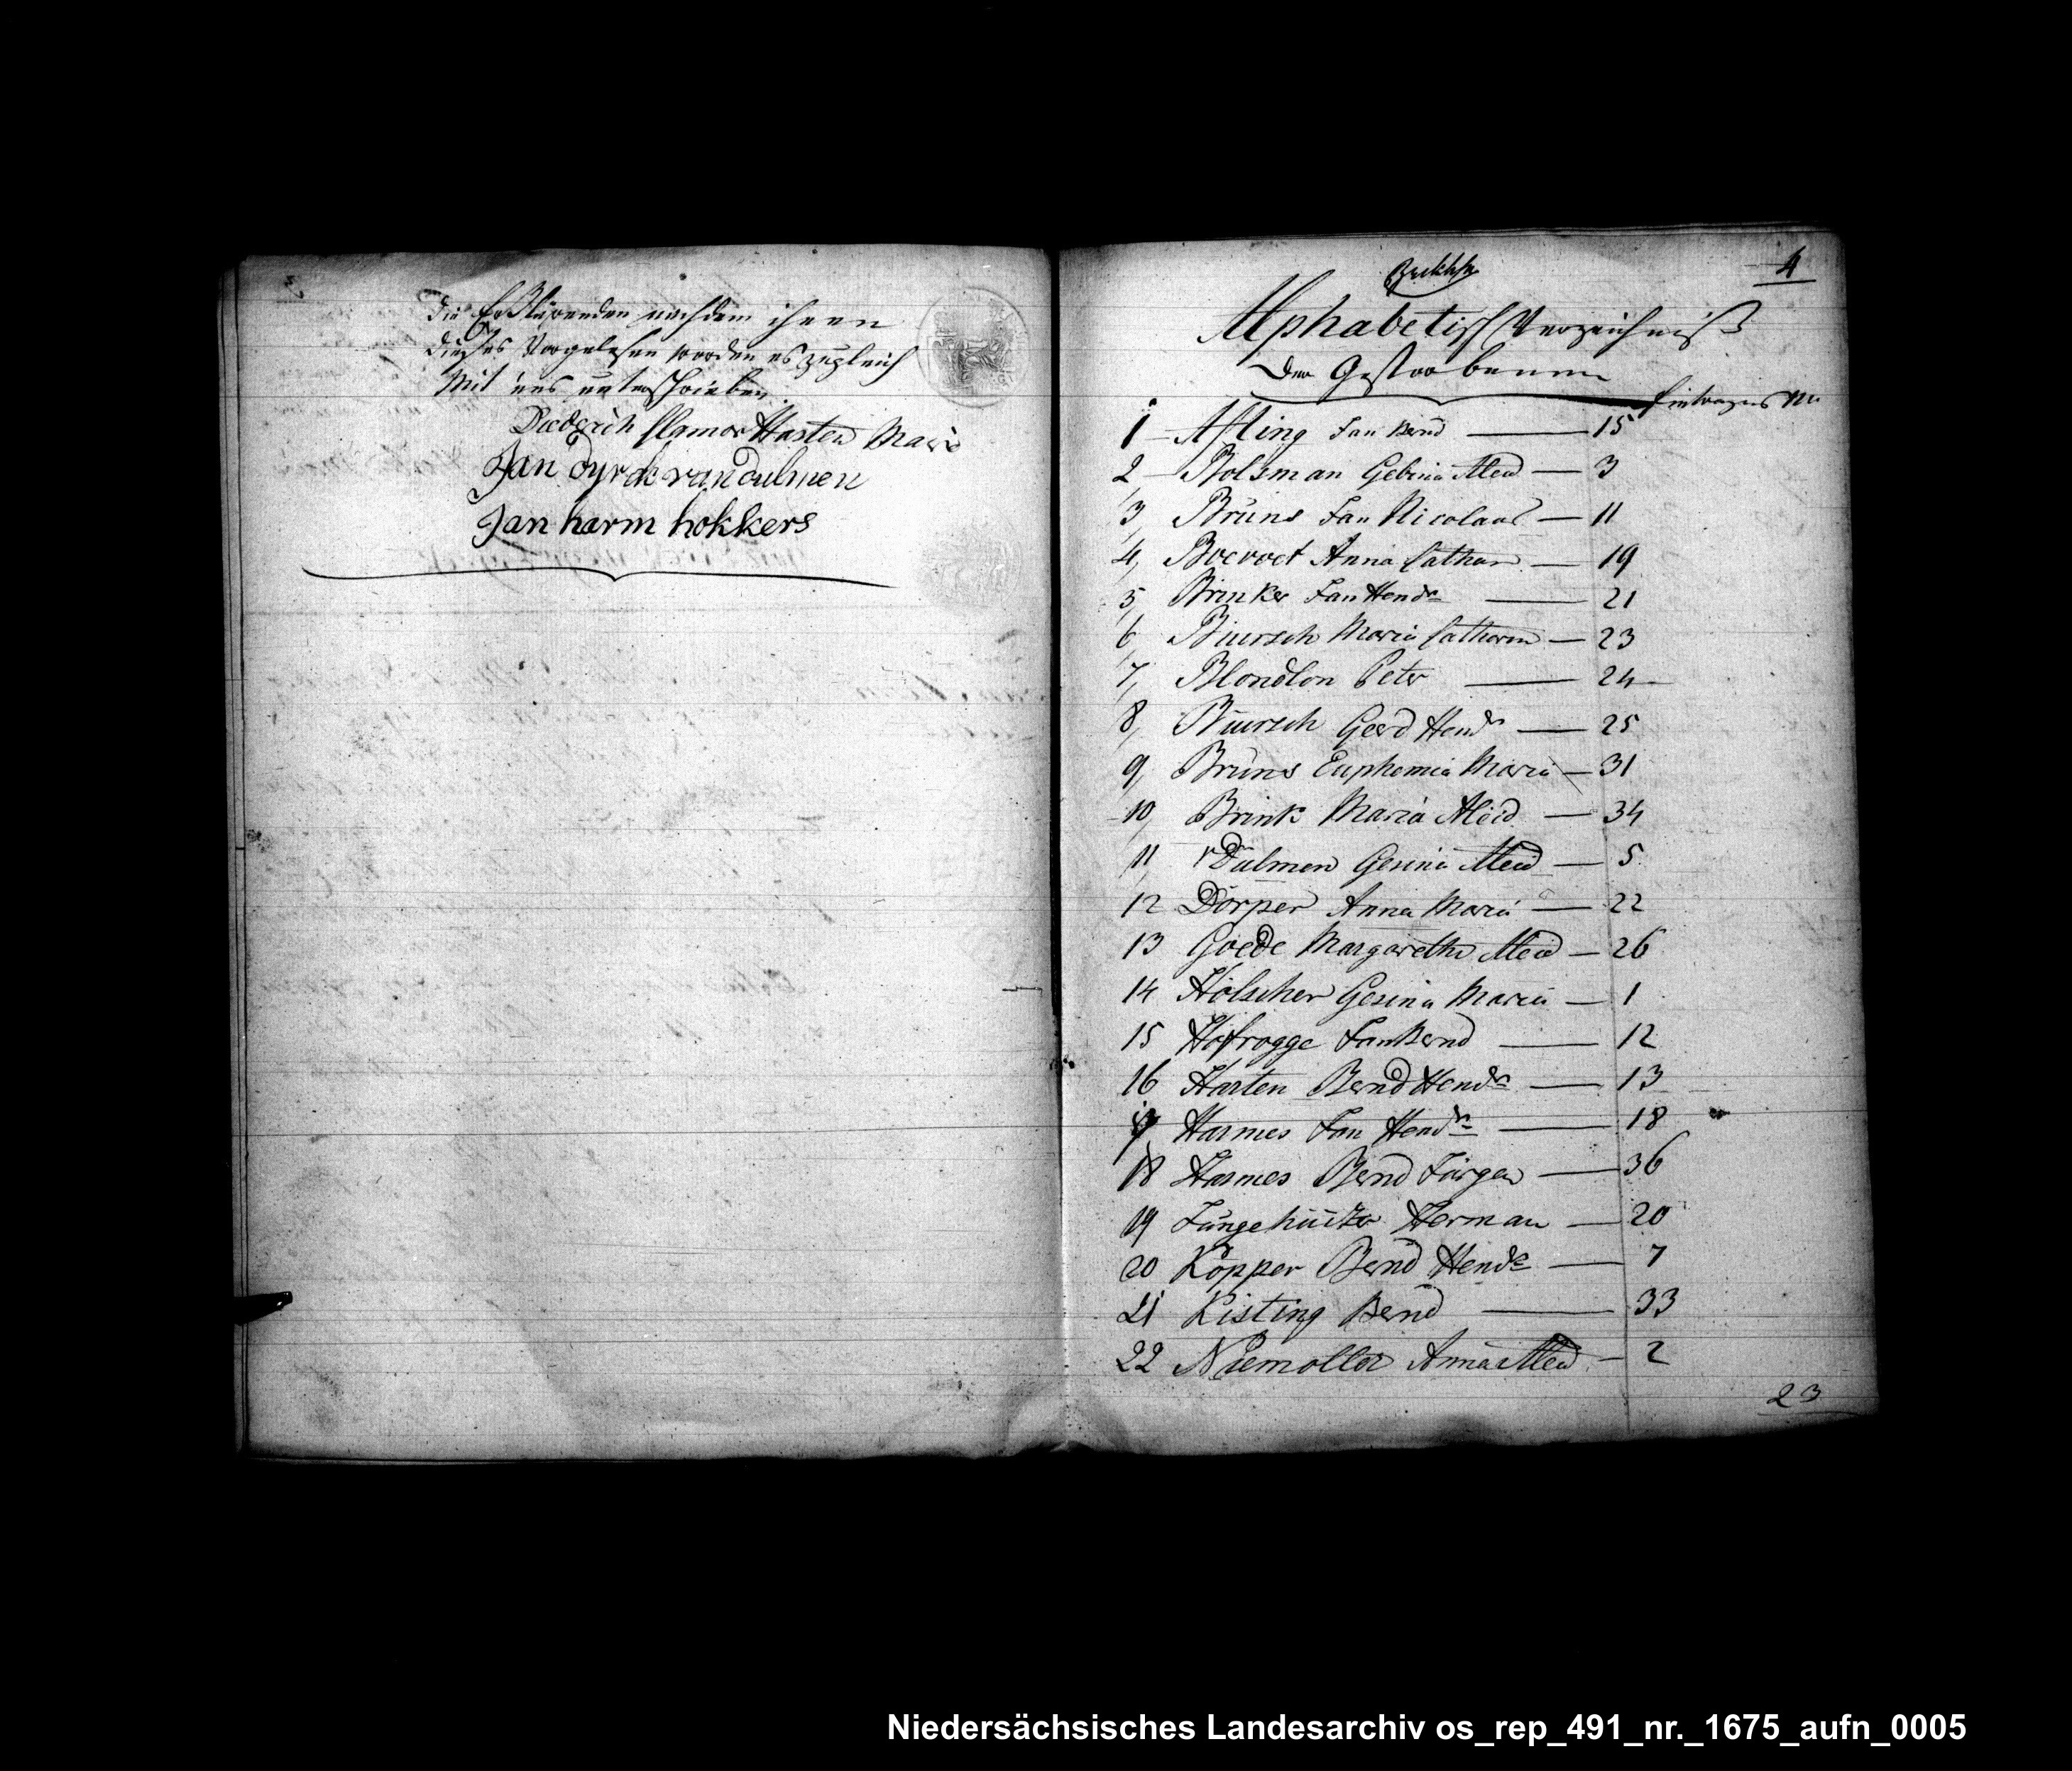 die Erklärenden nachdem ihnen
dieses Vorgelesen worden es zugleich
Mit uns unterschrieben.
Diederich Clamor Hasten Maire
Jan dyrck van dulmen
Jan harm hokkers
4
Alphabetisch Verzeichniß
Der Gestorbenen
Eintragens Nr
1 Afling Jan Bernd — 15
2 Bolsman Gebina Aleid — 3
3, Brüns Jan Nicolaas — 11
4, Boevoet Anna Cathar — 19
5, Brinker Jan Hendr — 21
6, Buursch Maria Catharin — 23
7, Blondlon Peter — 24
8, Buursch Geerd Hendr — 25
9, Brüns Euphemia Maria — 31
10, Brink Maria Aleid — 34
11, v Dülmen Gesina Aleid — 5
12 Dörper Anna Maria — 22
13 Goede Margaretha Aleid — 26
14 Hölscher Gesina Maria — 1
15 Hofrogge Jan Bernd — 12
16 Hasten Bernd Hendr — 13
17 Harmes Jan Hendr — 18
18 Harmes Bernd Jürgen — 36
19 Herman — 20
20 Köpper Bernd Hendr — 7
21 Kisting Bernd — 33
22 Niemoller Anna Aleid — 2
23
Niedersächsisches Landesarchiv os_rep_491_nr._1675_aufn_0005